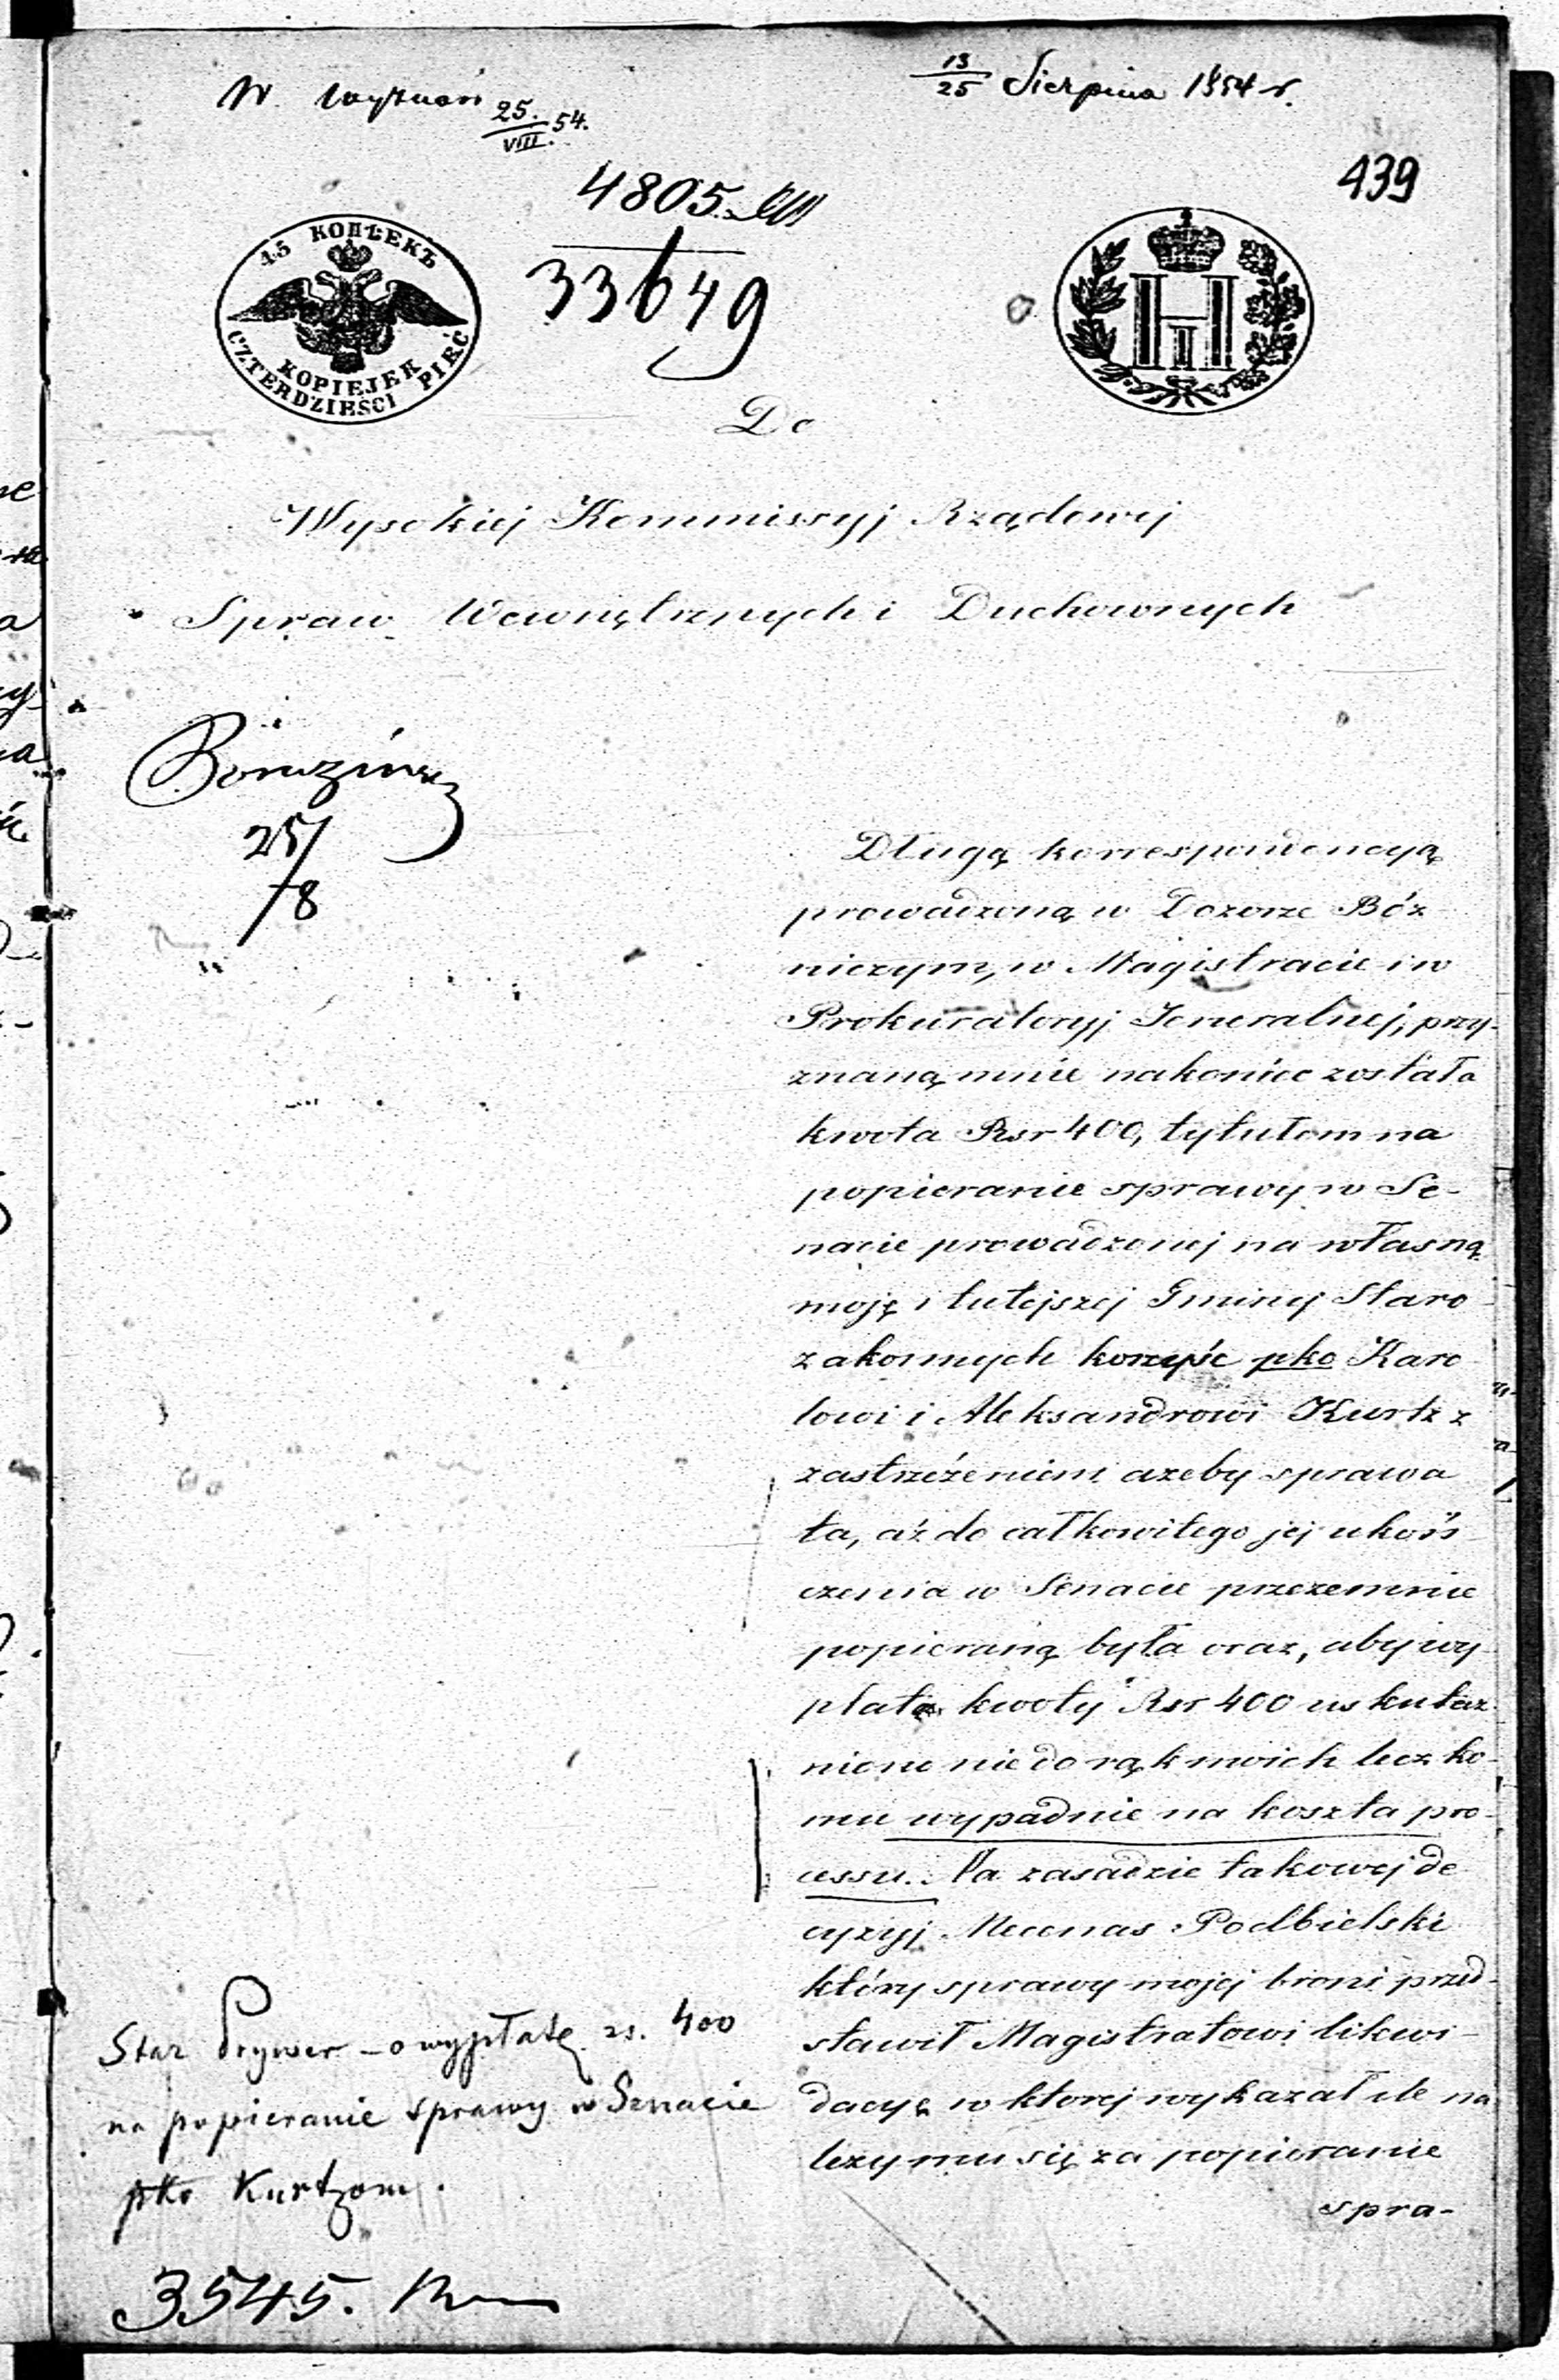 W. Wyznań 25./VIII. 54.
13/25 Sierpnia 1854 r.
439
4805
33649
45 КОПѢЕКЪ
CZTERDZIEŚCI PIĘĆ
KOPIEJEK
Do
Wysokiej Kommissyj Rządowej
Spraw Wewnętrznych i Duchownych
25/8
Długą korrespondencyą
prowadzoną w Dozorze Bóż
niczym, w Magistracie i w
Prokuratoryj Jeneralnej, przy-
znaną mnie nakoniec została
kwota Rsr 400, tytułem na
popieranie sprawy w Se-
nacie prowadzonej na własną
moję i tutejszej Gminy Staro
zakonnych korzyść pko Karo
lowi i Aleksandrowi Kurtz z
zastrzeżeniem ażeby sprawa
ta, aż do całkowitego jej ukoń
czenia w Senacie przezemnie
popieraną była oraz, aby wy
płata kwoty Rsr 400 uskutecz
niono nie do rąk moich lecz ko-
mu wypadnie na koszta pro-
cessu. Na zasadzie takowej de
cyzyj Mecenas Podbielski
który sprawy mojej broni przed-
stawił Magistratowi likwi-
dacyę w ktorej wykazał ile na
leży mu się za popieranie
spra-
Star Prywer – o wypłatę rs. 400
na popieranie sprawy w Senacie
pko Kurtzom.
3545.